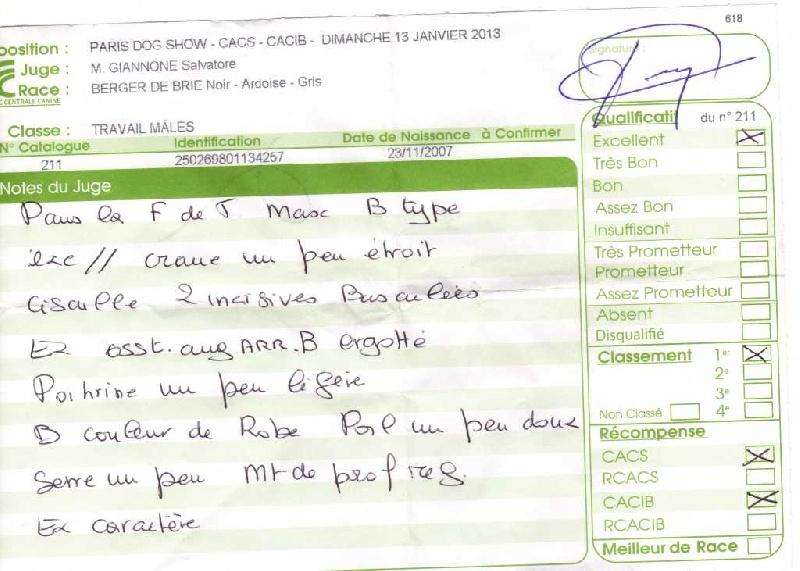 618
position : PARIS DOG SHOW - CACS - CACIB - DIMANCHE 13 JANVIER 2013
Juge : M. GIANNONE Salvatore
Race : BERGER DE BRIE Noir - Ardoise - Gris
CENTRALE CANINE
Classe : TRAVAIL MÂLES
N° Catalogue Identification Date de Naissance à Confirmer
211 250269801134257 23/11/2007
Notes du Juge
Dans la F de T Masc B type
exc // crane un peu étroit
Cisaille 2 incisives Basculées
Ex osst. ang ARR. B ergotté
Poitrine un peu légère
B couleur de Robe Poil un peu doux
Serre un peu Mt de prof reg.
Ex caractère
Signature :
Qualificatif du n° 211
Excellent X
Très Bon
Bon
Assez Bon
Insuffisant
Très Prometteur
Prometteur
Assez Prometteur
Absent
Disqualifié
Classement 1er X
2e
3e
Non Classé 4e
Récompense
CACS X
RCACS
CACIB X
RCACIB
Meilleur de Race